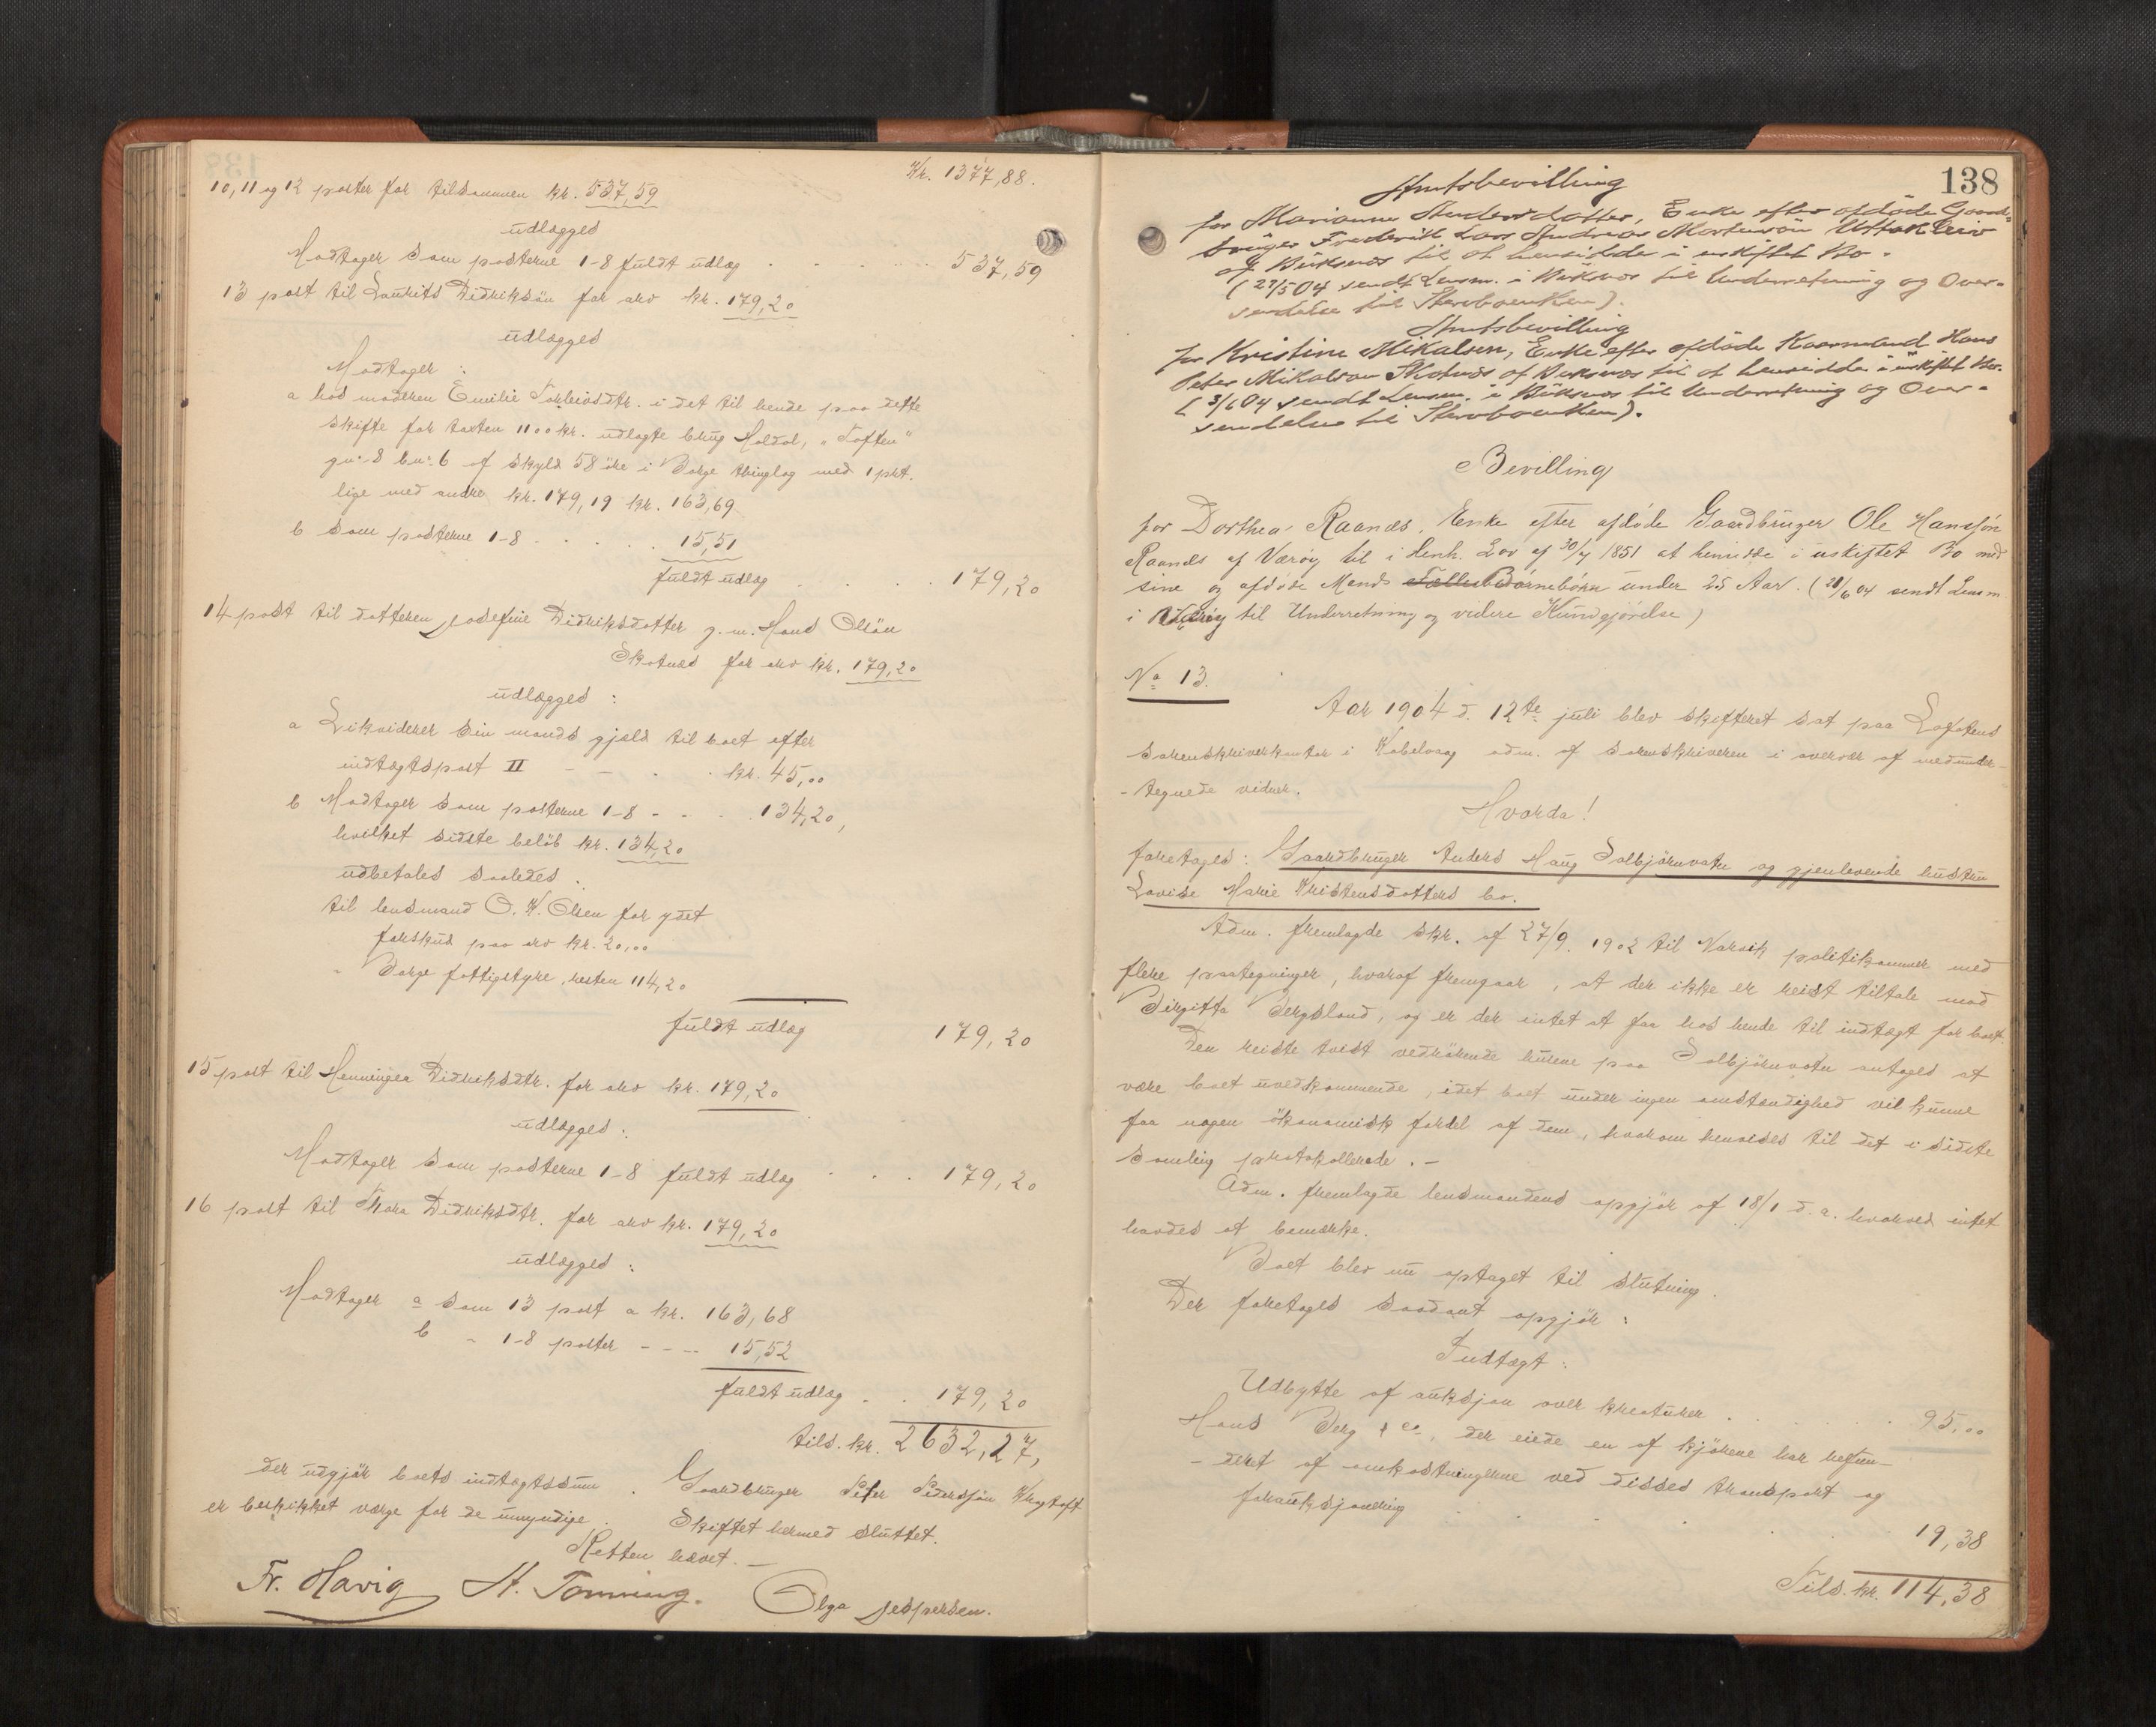 Kr. 1377,88.
10, 11 og 12 poster for tilsammen kr. 537,59
udlægges
Modtager som posterne 1-8 fuldt udlæg 537,59
13 post til Laurits Didriksön for arv kr. 179,20
udlægges
Modtager:
a hos moderen Emilie Torleivsdtr. i det til hende paa dette
skifte for taxten 1100 kr. udlagte brug Holdal, "Toften"
gn: 8 bn: 6 af skyld 58 öre i Borge thinglag med 1 prt.
lige med andre kr. 179,19 kr. 163,69
b som posterne 1-8 - - - 15,51
fuldt udlæg 179,20
14 post til datteren Josefine Didriksdatter g. m. Hans Olsön
Skotnæs for arv kr. 179,20
udlægges:
a Likviderer sin mands gjæld til boet efter
indtægtspost II - - - kr. 45,00
b Modtager som posterne 1-8 - - - 134,20,
hvilket sidste belöb kr. 134,20
udbetales saaledes:
til lensmand O. K. Olsen for ydet
forskud paa arv kr. 20,00
" Borge fattigstyre, resten 114,20
fuldt udlæg 179,20
15 post til Henningea Didriksdtr. for arv kr. 179,20
udlægges:
Modtager som posterne 1-8 fuldt udlæg 179,20
16 post til Thora Didriksdtr. for arv kr. 179,20
udlægges:
Modtager a som 13 post a kr. 163,68
b " 1-8 poster - - - 15,52
fuldt udlæg 179,20
tils. kr. 2632,27,
der udgjör boets indtægtssum. Gaardbruger Peter Pedersjön Krogtoft
er beskikket værge for de umyndige. Skiftet hermed sluttet.
Retten hævet. -
Fr. Havig H. Tonning. Olga Jespersen.
138
Amtsbevilling
for Marianne Andersdatter, Enke efter afdöde Gaard-
bruger Fredrik Lars Andreas Mortensön Uttakleiv
af Buksnæs til at hensidde i uskiftet Bo.
(27/5 04 sendt Lensm. i Buksnæs til Underretning og Over-
sendelse til Stervboenken).
Amtsbevilling
for Kristine Mikalsen, Enke efter afdöde Kaarmand Hans
Peter Mikalsen Skotnæs af Buksnæs til at hensidde i uskiftet Bo.
(3/6 04 sendt Lensm. i Buksnæs til Underretning og Over-
sendelse til Stervboenken).
Bevilling
for Dorthea Raanæs, Enke efter afdöde Gaardbruger Ole Hansjön
Raanæs af Værøy til i Henh. Lov af 30/7 1851 at hensidde i uskiftet Bo med
sine og afdöde Mands Fælles Börnebörn under 25 Aar. (28/6 04 sendt Lensm
i Værøy til Underretning og videre Kundgjörelse)
No 13.
Aar 1904 d. 12te juli blev skifteret sat paa Lofotens
sorenskriverkontor i Kabelvaag adm. af sorenskriveren i overvær af medunder-
-tegnede vidner.
Hvorda!
foretoges: Gaardbruger Anders Haug Solbjörnvatn og gjenlevende hustru
Lovise Marie Kristensdotters bo.
Adm. fremlagde skr. af 27/9. 1902 til Narvik politikammer med
flere paategninger, hvoraf fremgaar, at der ikke er reist tiltale mod
Birgitta Bergsland, og er der intet at faa hos hende til indtægt for boet.
Den reiste tvist vedrörende husene paa Solbjörnvatn antages at
være boet uvedkommende, idet boet under ingen omstændighed vil kunne
faa nogen ökonomisk fordel af dem, hvorom henvises til det i sidste
samling protokollerede. -
Adm. fremlagde lensmandens opgjör af 18/1 d. a. hvorved intet
havdes at bemærke.
Boet blev nu optaget til slutning.
Der foretoges saadant opgjör:
Indtægt:
Udbytte af auksjon over kreaturer 95,00
Hans Berg & co, der eiede en af kjörene har refun-
-deret af omkostningerne ved disses transport og
forauksjonering 19,38
Tils. kr. 114,38